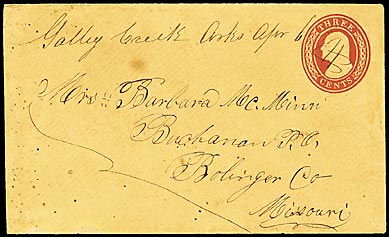 Galley Creek Arks Apr 6
THREE
CENTS
Mrs Barbara Mc. Minn
Buchanan P.O.
Bolinger Co
Missouri